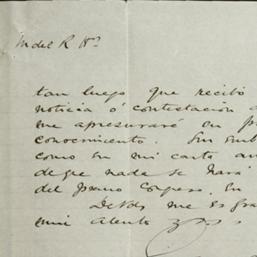 M del R Hº
tan luego que recibo
noticia ó contestación
me apresuraré en
conocimiento. Sin
como en mi carta
de que nada se hará
del
De Vd. me es
muy atento